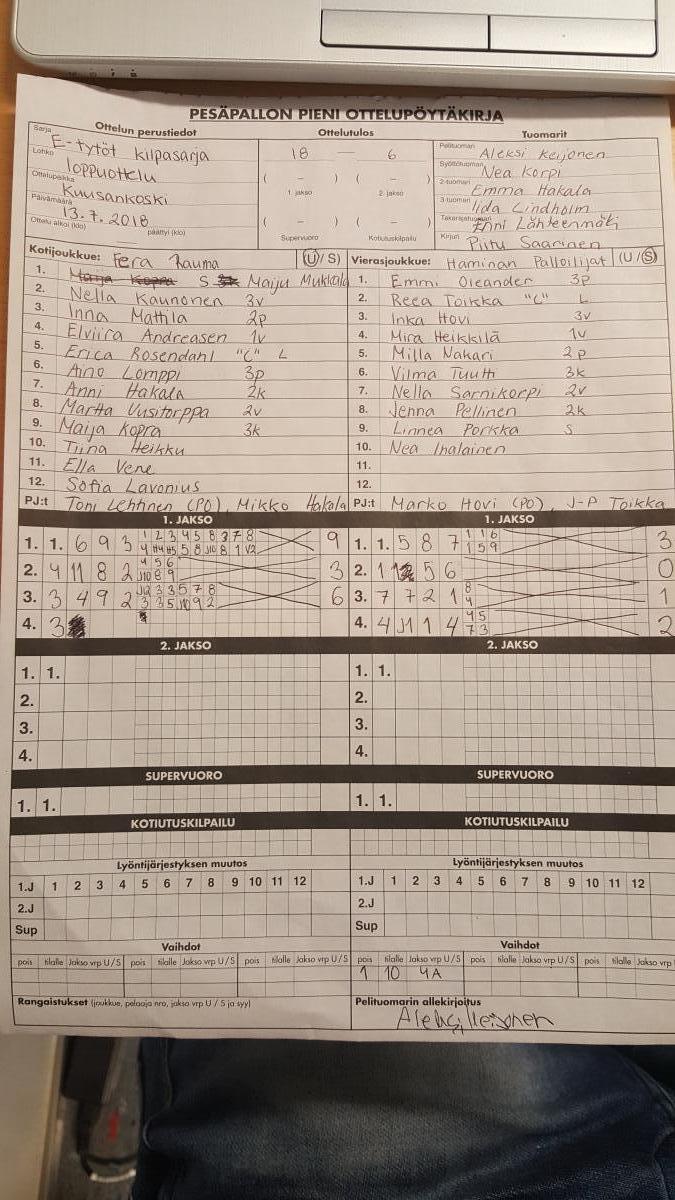 PESÄPALLON PIENI OTTELUPÖYTÄKIRJA
Ottelun perustiedot
Ottelutulos
Tuomarit
Sarja E-tytöt kilpasarja
Lohko loppuottelu
Ottelupaikka Kuusankoski
Päivämäärä 13.7.2018
Ottelu alkoi (klo) päättyi (klo)
18 — 6
( – ) ( – )
1. jakso 2. jakso
( – ) ( – )
Supervuoro Kotiutuskilpailu
Pelituomari Aleksi Keijonen
Syöttötuomari Nea Korpi
2-tuomari Emma Hakala
3-tuomari Iida Lindholm
Takarajatuomari Enni Lähteenmäki
Kirjuri Piitu Saarinen
Kotijoukkue: Fera Rauma (U/S)
1. Maija Kopra S Maiju Mukkala
2. Nella Kaunonen 3v
3. Inna Mattila 2p
4. Elviira Andreasen 1v
5. Erica Rosendahl "C" L
6. Aino Lomppi 3p
7. Anni Hakala 2k
8. Martta Uusitorppa 2v
9. Maija Kopra 3k
10. Tiina Heikku
11. Ella Vene
12. Sofia Lavonius
PJ:t Toni Lehtinen (PO), Mikko Hakala
Vierasjoukkue: Haminan Palloilijat (U/S)
1. Emmi Oleander 3p
2. Reea Toikka "C" L
3. Inka Hovi 3v
4. Mira Heikkilä 1v
5. Milla Nakari 2p
6. Vilma Tuutti 3k
7. Nella Sarnikorpi 2v
8. Jenna Pellinen 2k
9. Linnea Porkka S
10. Nea Ihalainen
11.
12.
PJ:t Marko Hovi (PO), J-P Toikka
1. JAKSO
1. 1. 6 9 3 1 2 3 4 5 8 3 7 8 9
2. 4 11 8 2 4 5 6 J10 8 9 3
3. 3 4 9 2 J12 3 3 5 7 8 3 3 5 10 9 2 6
4. 3
1. JAKSO
1. 1. 5 8 7 1 1 6 1 5 9 3
2. 1 5 6 0
3. 7 7 2 1 8 4 1
4. 4 J1 1 4 4 5 7 3 2
2. JAKSO
1. 1.
2.
3.
4.
2. JAKSO
1. 1.
2.
3.
4.
SUPERVUORO
1. 1.
SUPERVUORO
1. 1.
KOTIUTUSKILPAILU
KOTIUTUSKILPAILU
Lyöntijärjestyksen muutos
1.J 1 2 3 4 5 6 7 8 9 10 11 12
2.J
Sup
Lyöntijärjestyksen muutos
1.J 1 2 3 4 5 6 7 8 9 10 11 12
2.J
Sup
Vaihdot
pois tilalle Jakso vrp U/S pois tilalle Jakso vrp U/S pois tilalle Jakso vrp U/S
Vaihdot
pois tilalle Jakso vrp U/S pois tilalle Jakso vrp U/S pois tilalle Jakso vrp
1 10 4A
Rangaistukset (joukkue, pelaaja nro, jakso vrp U/S ja syy)
Pelituomarin allekirjoitus
Aleksi Keijonen